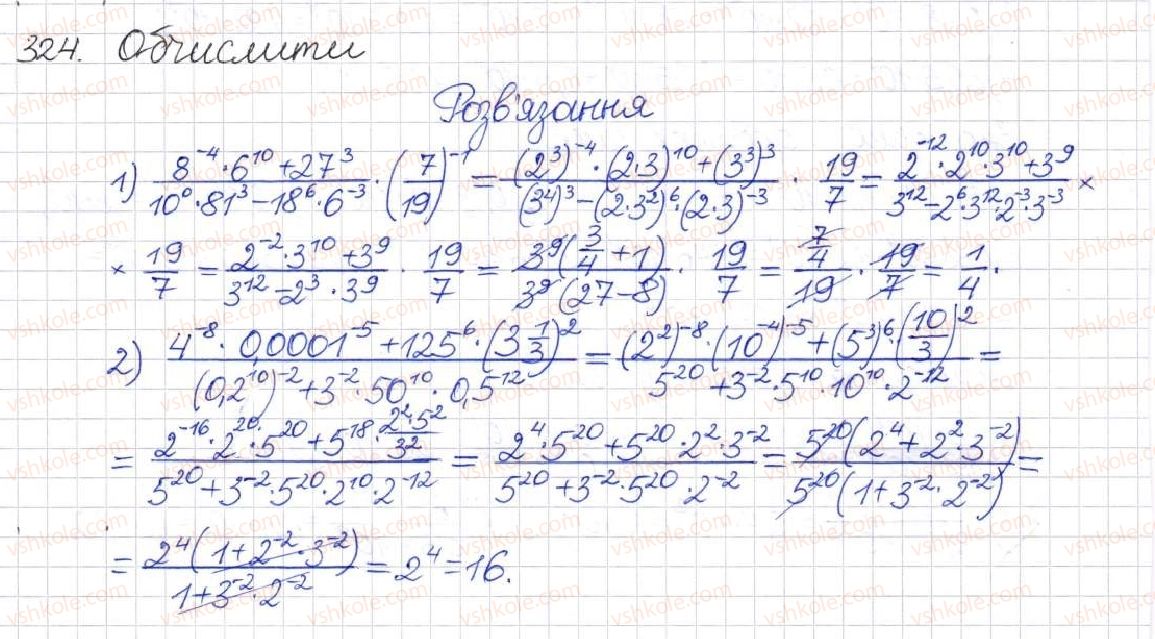 324. Обчислити
Розв'язання
1) (8^-4 · 6^10 + 27^3)/(10^0 · 81^3 − 18^6 · 6^-3) · (7/19)^-1 = ((2^3)^-4 · (2·3)^10 + (3^3)^3)/((3^4)^3 − (2·3^2)^6 · (2·3)^-3) · 19/7 = (2^-12 · 2^10 · 3^10 + 3^9)/(3^12 − 2^6 · 3^12 · 2^-3 · 3^-3) ×
× 19/7 = (2^-2 · 3^10 + 3^9)/(3^12 − 2^3 · 3^9) · 19/7 = (3^9(3/4 + 1))/(3^9(27 − 8)) · 19/7 = (7/4)/19 · 19/7 = 1/4.
2) (4^-8 · 0,0001^-5 + 125^-6 · (3 1/3)^2)/((0,2^10)^-2 + 3^-2 · 50^10 · 0,5^-12) = ((2^2)^-8 · (10^-4)^-5 + (5^3)^6 · (10/3)^2)/(5^20 + 3^-2 · 5^10 · 10^10 · 2^-12) =
= (2^-16 · 2^20 · 5^20 + 5^18 · (2^2 · 5^2)/3^2)/(5^20 + 3^-2 · 5^20 · 2^10 · 2^-12) = (2^4 · 5^20 + 5^20 · 2^2 · 3^-2)/(5^20 + 3^-2 · 5^20 · 2^-2) = (5^20(2^4 + 2^2 · 3^-2))/(5^20(1 + 3^-2 · 2^-2)) =
= (2^4(1 + 2^-2 · 3^-2))/(1 + 3^-2 · 2^-2) = 2^4 = 16.